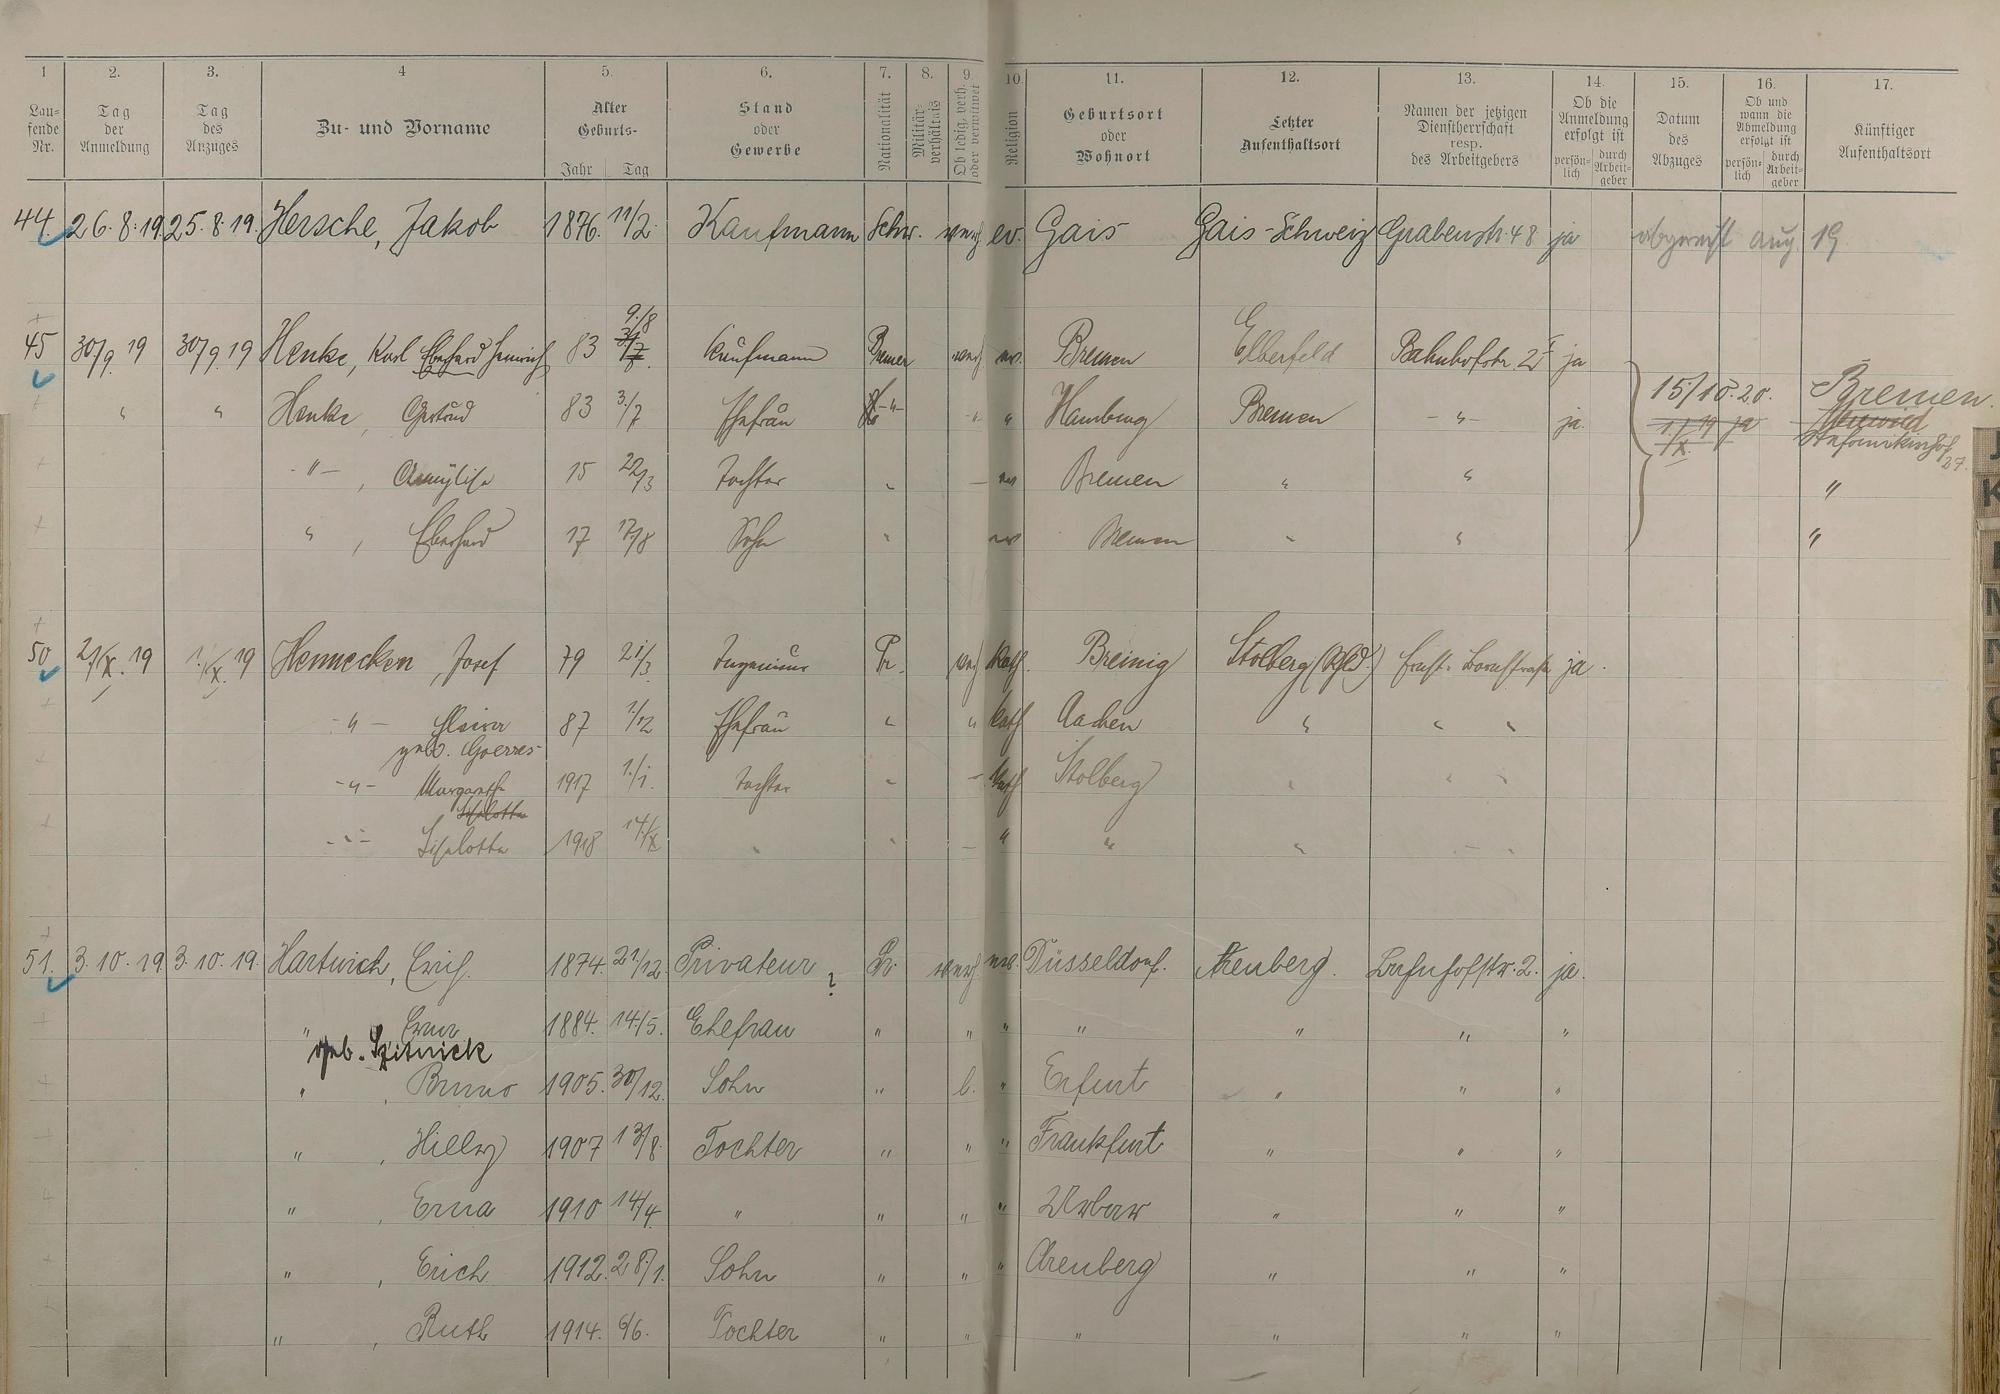 1 2. 3. 4 5. 6. 7. 8. 9. 10. 11. 12. 13. 14. 15. 16. 17.
Lau-
fende
Nr.
Tag
der
Anmeldung
Tag
des
Anzuges
Zu- und Vorname
Alter
Geburts-
Jahr Tag
Stand
oder
Gewerbe
Nationalität
Militär-
verhältnis
Ob ledig, verh.
oder verwitwet
Religion
Geburtsort
oder
Wohnort
Letzter
Aufenthaltsort
Namen der jetzigen
Dienstherrschaft
resp.
des Arbeitgebers
Ob die
Anmeldung
erfolgt ist
persön-
lich
durch
Arbeit-
geber
Datum
des
Abzuges
Ob und
wann die
Abmeldung
erfolgt ist
persön-
lich
durch
Arbeit-
geber
Künftiger
Aufenthaltsort
44. 26.8.19 25.8.19. Hersche, Jakob 1876. 11/2. Kaufmann Schw. verh ev. Gais Gais-Schweiz Grabenstr. 48 ja abgereist aug. 19
9./8
45 30/9 19 30/9 19 Henke, Karl Eberhard Heinrich 83 Kaufmann Bremer verh ev. Bremen Elberfeld Bahnhofstr. 2 I ja
15/10.20. Bremen.
" " Henke, Gertrud 83 3./7 Ehefrau -"- " " Hamburg Bremen -"- ja.
-"-, Annylise 15 22/3 Tochter " — ev Bremen " " "
", Eberhard 17 17/8 Sohn " ev Bremen " " "
50 2/X. 19 1./X. 19 Hennecken, Josef 79 21/3. Ingenieur Pr. verh kath. Breinig Stolberg (Rhld.) Ernst-Bornstrasse ja.
-"- 87 1/12 Ehefrau " " kath Aachen " " "
geb. Goerres
-"- Margarethe 1917 1./1. Tochter " - kath Stolberg " " "
-"- Liselotte 1918 14/X " " — " " " - "
51. 3.10.19 3.10.19. Hartwich, Erich. 1874. 21/12. Privateur ? Pr. verh ev. Düsseldorf. Arenberg. Bahnhofstr. 2. ja.
" Erna 1884. 14/5. Ehefrau " " " " " " "
geb. Szitnick
", Bruno 1905. 30/12. Sohn " l. " Erfurt " " "
", Hilley 1907 13/8. Tochter " " " Frankfurt " " "
", Erna 1910 14/4 " " " " Urbar " " "
", Erich 1912. 28/1. Sohn " " " Arenberg " " "
", Ruth 1914. 6/6. Tochter " " " " " "